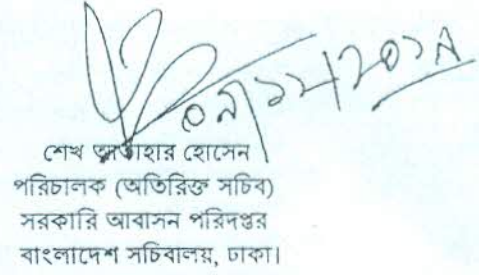 ০৯/১২/২০১৯
শেখ আতাহার হোসেন
পরিচালক (অতিরিক্ত সচিব)
সরকারি আবাসন পরিদপ্তর
বাংলাদেশ সচিবালয়, ঢাকা।